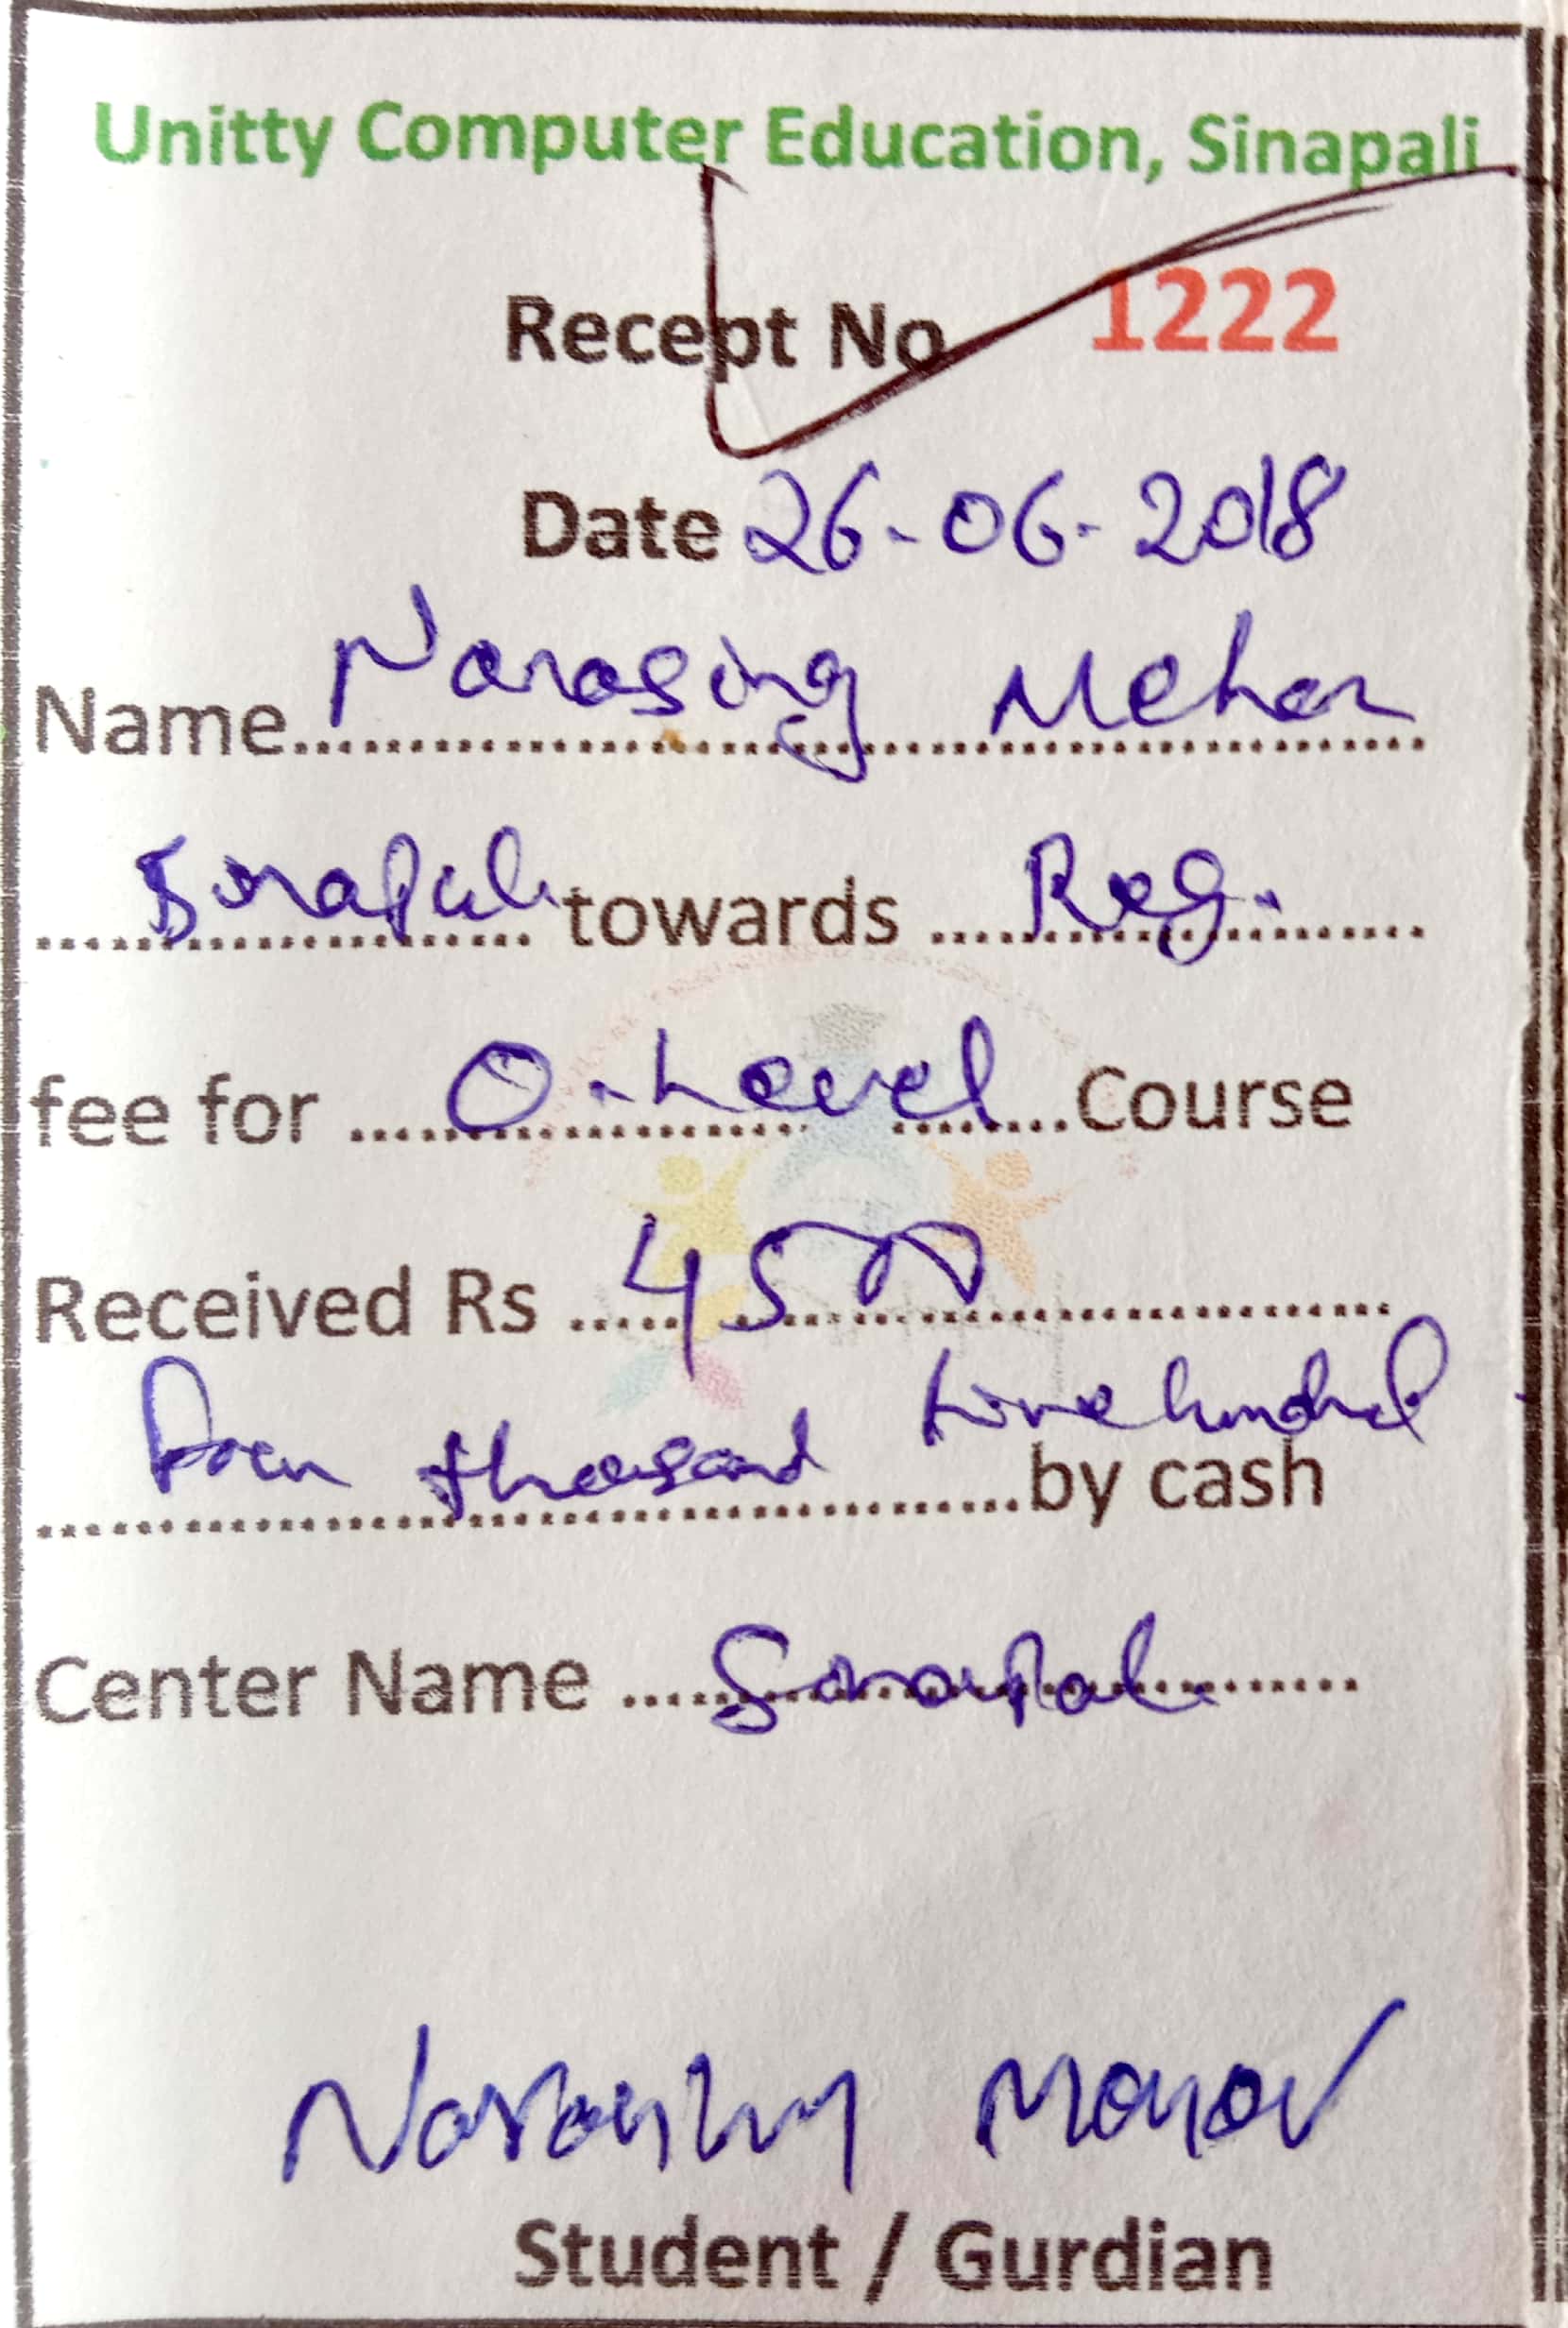 Unitty Computer Education, Sinapali
Recept No 1222
Date 26-06-2018
Name Narasing Meher
Sinapali towards Reg.
fee for O-Level Course
Received Rs 4500
Four thousand five hundred by cash
Center Name Sinapali
Student / Gurdian